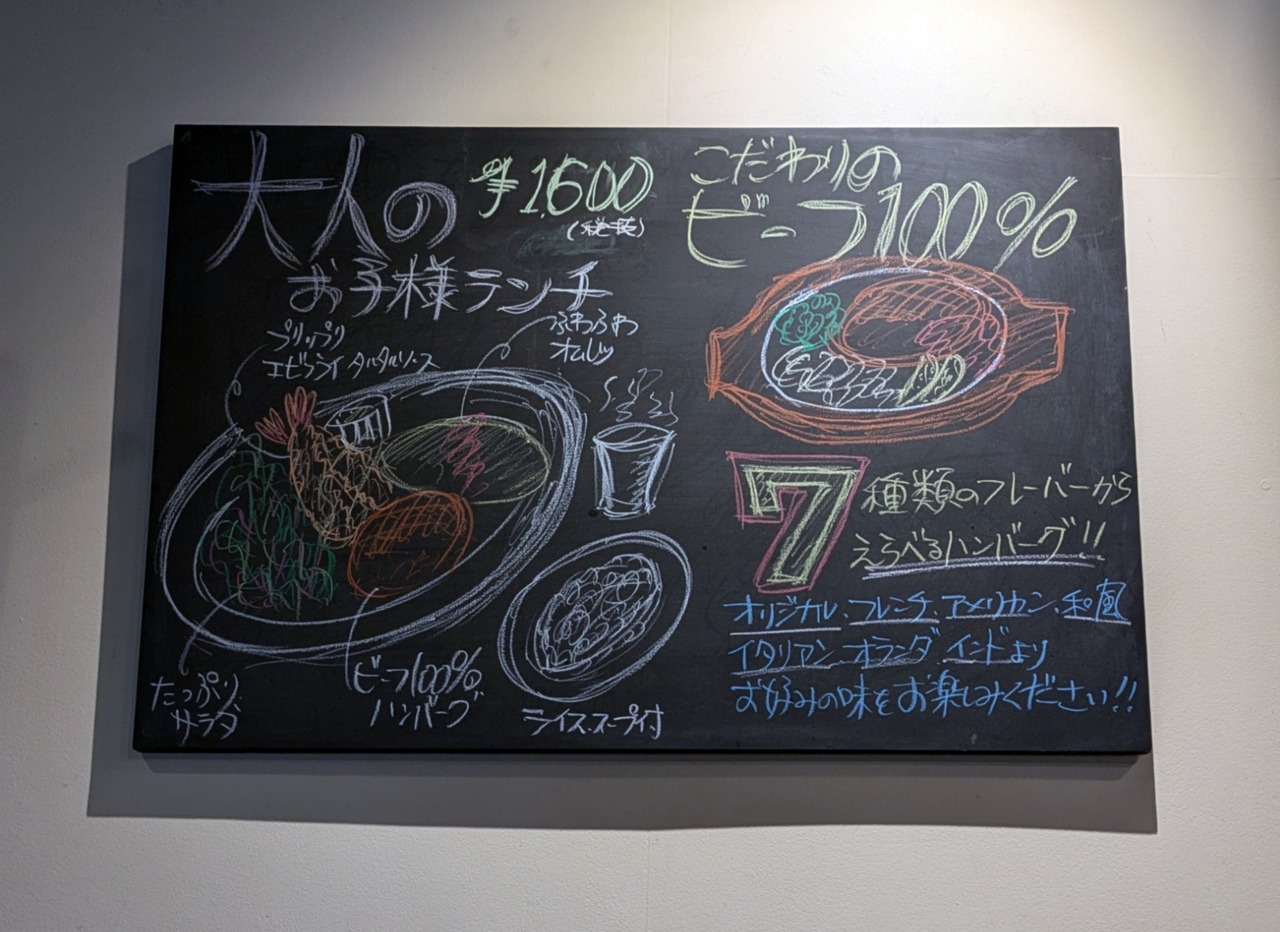 大人の
¥1,600
お子様ランチ
プリップリ
エビフライ タルタルソース
ふわふわ
オムレツ
たっぷり
サラダ
ビーフ100%
ハンバーグ
ライス、スープ付
こだわりの
ビーフ100%
7種類のフレーバーから
えらべるハンバーグ!!
オリジナル、フレンチ、アメリカン、和風
イタリアン、オランダ インドより
お好みの味をお楽しみください!!